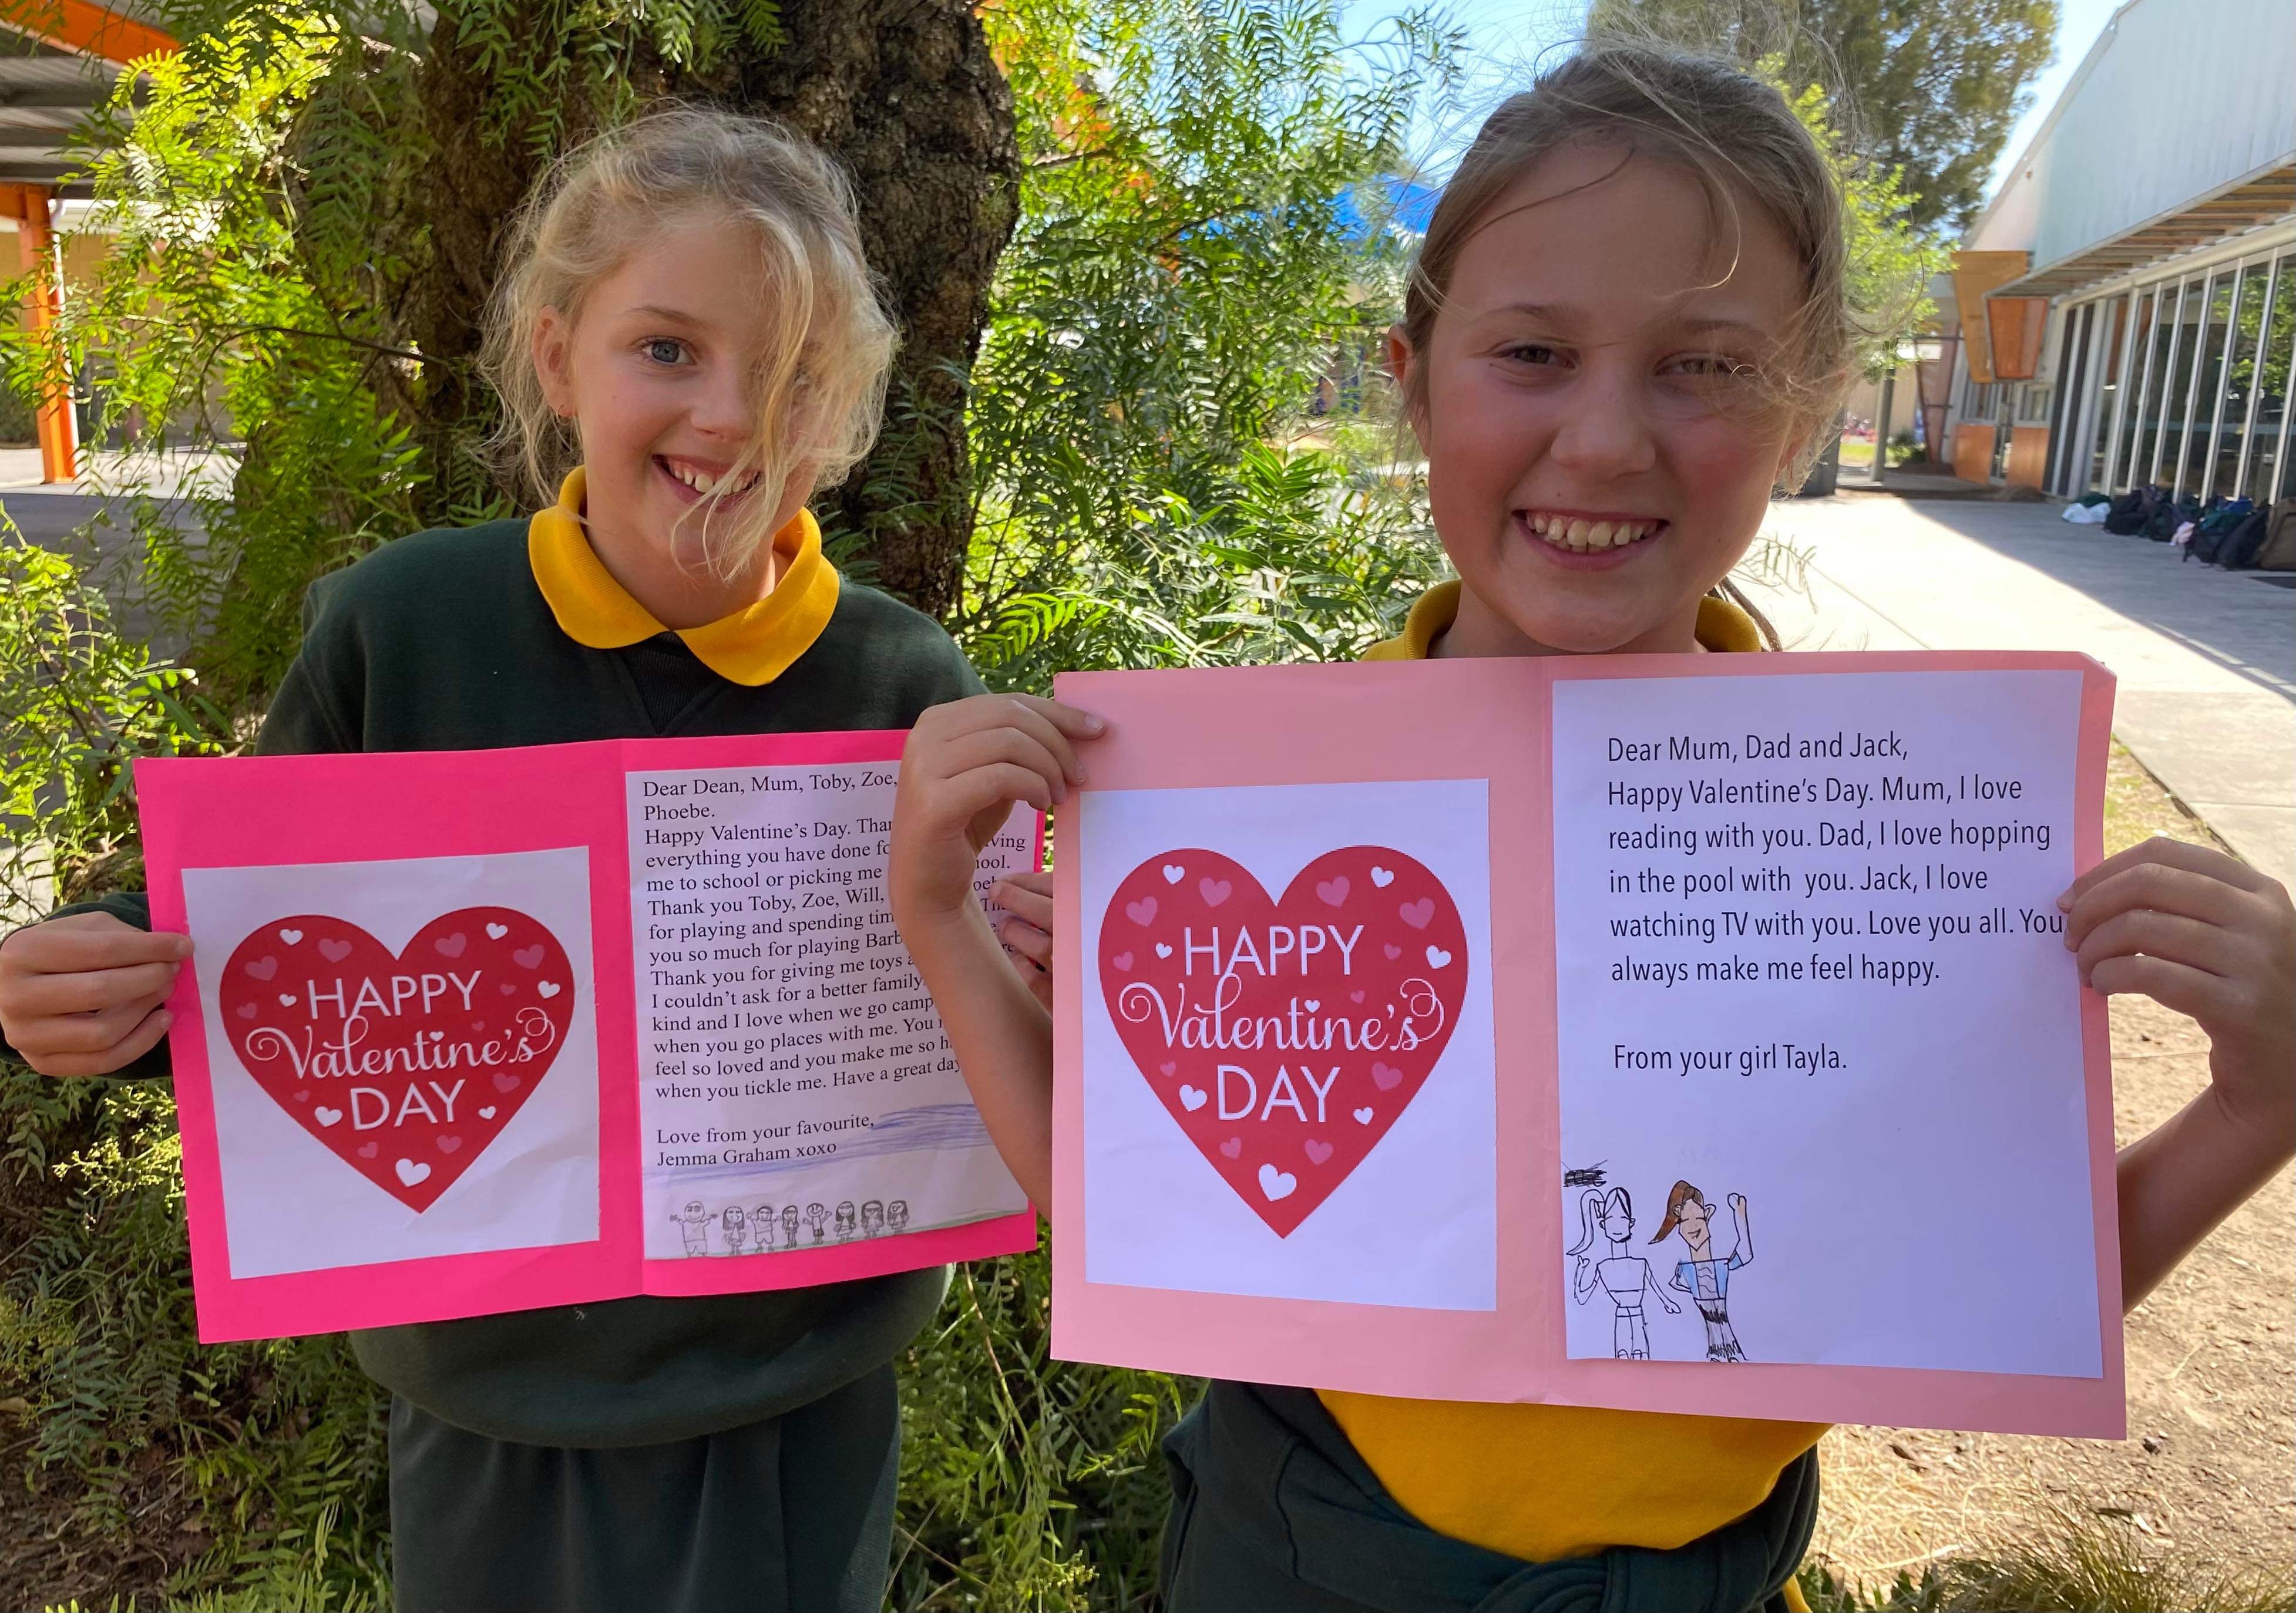 HAPPY
Valentine's
DAY
Dear Dean, Mum, Toby, Zoe,
Phoebe.
Happy Valentine's Day.
everything you have done
me to school or picking me
Thank you Toby, Zoe, Will,
for playing and spending
you so much for playing
Thank you for giving me toys
I couldn't ask for a better family.
kind and I love when we go
when you go places with me. You
feel so loved and you make me so
when you tickle me. Have a great day
Love from your favourite,
Jemma Graham xoxo
HAPPY
Valentine's
DAY
Dear Mum, Dad and Jack,
Happy Valentine's Day. Mum, I love
reading with you. Dad, I love hopping
in the pool with you. Jack, I love
watching TV with you. Love you all. You
always make me feel happy.
From your girl Tayla.